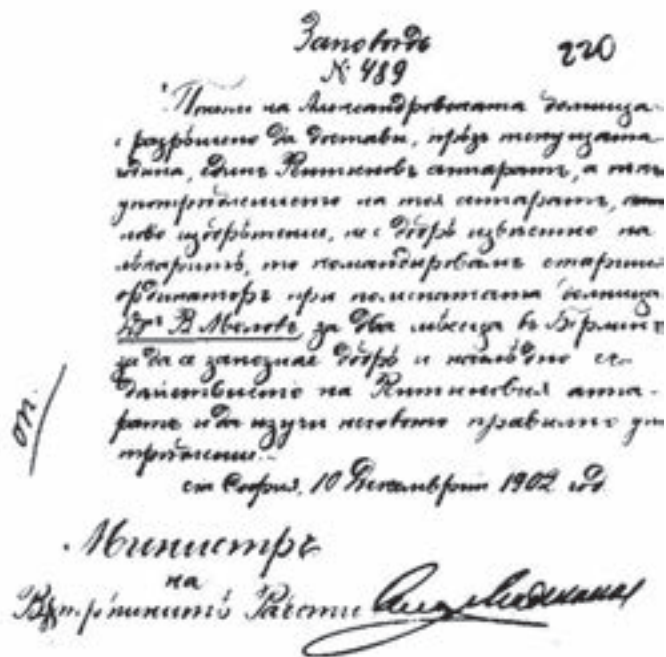 Заповѣдь
220
№ 489
Понеже на Александровската болница
е разрѣшено да достави, прѣзъ текущата
година, единъ Рентгеновъ аппаратъ, а тъй
употрѣблението на тоя аппаратъ,
ново изобрѣтение, не е добрѣ извѣстно на
лѣкаритѣ, то командировамъ старшия
ординаторъ при помѣнатата болница
Д-ръ В. Моловъ за два мѣсеца въ Берлинъ
за да се запознае добрѣ и нагледно съ
действието на Рентгеновия аппа-
ратъ и да изучи неговото правилно упо
трѣбление.
гр. София, 10 Декемврий 1902 год
оп.
Министръ
на
Вѫтрѣшнитѣ Работи